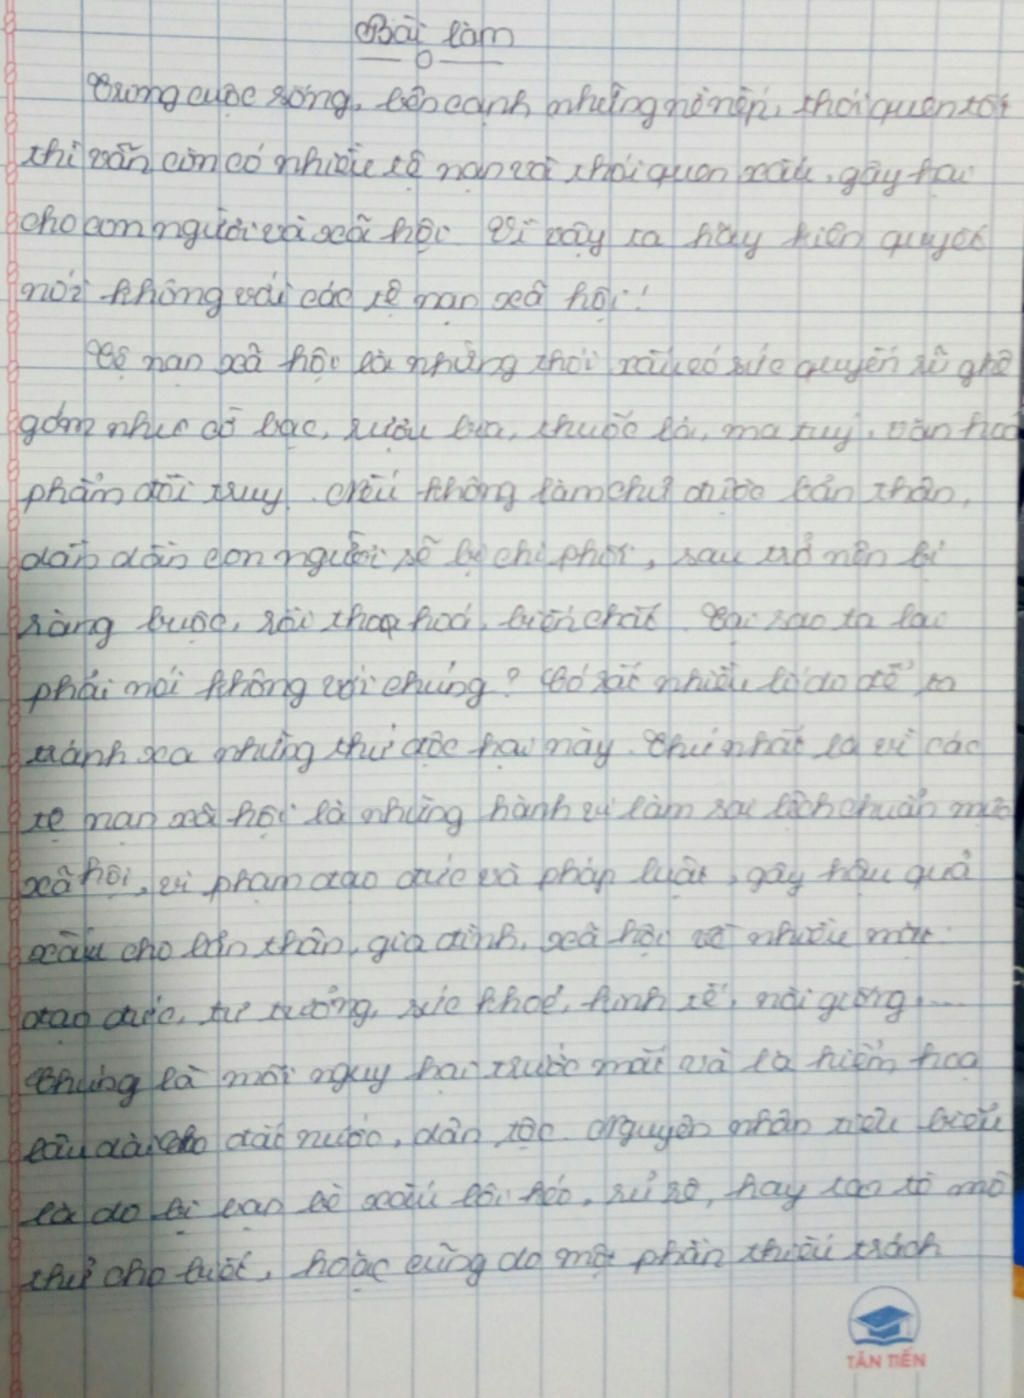 Bài làm
Trong cuộc sống, bên cạnh những nề nếp, thói quen tốt
thì vẫn còn có nhiều tệ nạn và thói quen xấu, gây hại
cho con người và xã hội. Vì vậy ta hãy kiên quyết
nói không với các tệ nạn xã hội!
Tệ nạn xã hội là những thói xấu có sức quyến rũ ghê
gớm như cờ bạc, rượu bia, thuốc lá, ma tuý, văn hoá
phẩm đồi truỵ. Nếu không làm chủ được bản thân,
dần dần con người sẽ bị chi phối, sau trở nên bị
ràng buộc, rồi thoái hoá, biến chất. Tại sao ta lại
phải nói không với chúng? Có rất nhiều lí do để ta
tránh xa những thứ độc hại này. Thứ nhất là vì các
tệ nạn xã hội là những hành vi làm sai lệch chuẩn mực
xã hội, vi phạm đạo đức và pháp luật, gây hậu quả
xấu cho bản thân, gia đình, xã hội về nhiều mặt:
đạo đức, tư tưởng, sức khoẻ, kinh tế, nòi giống,...
Chúng là mối nguy hại trước mắt và là hiểm hoạ
lâu dài cho đất nước, dân tộc. Nguyên nhân tiêu biểu
là do bị bạn bè xấu lôi kéo, rủ rê, hay tan tò mò
thử cho biết, hoặc cũng do một phần thiếu trách
TÂN TIẾN